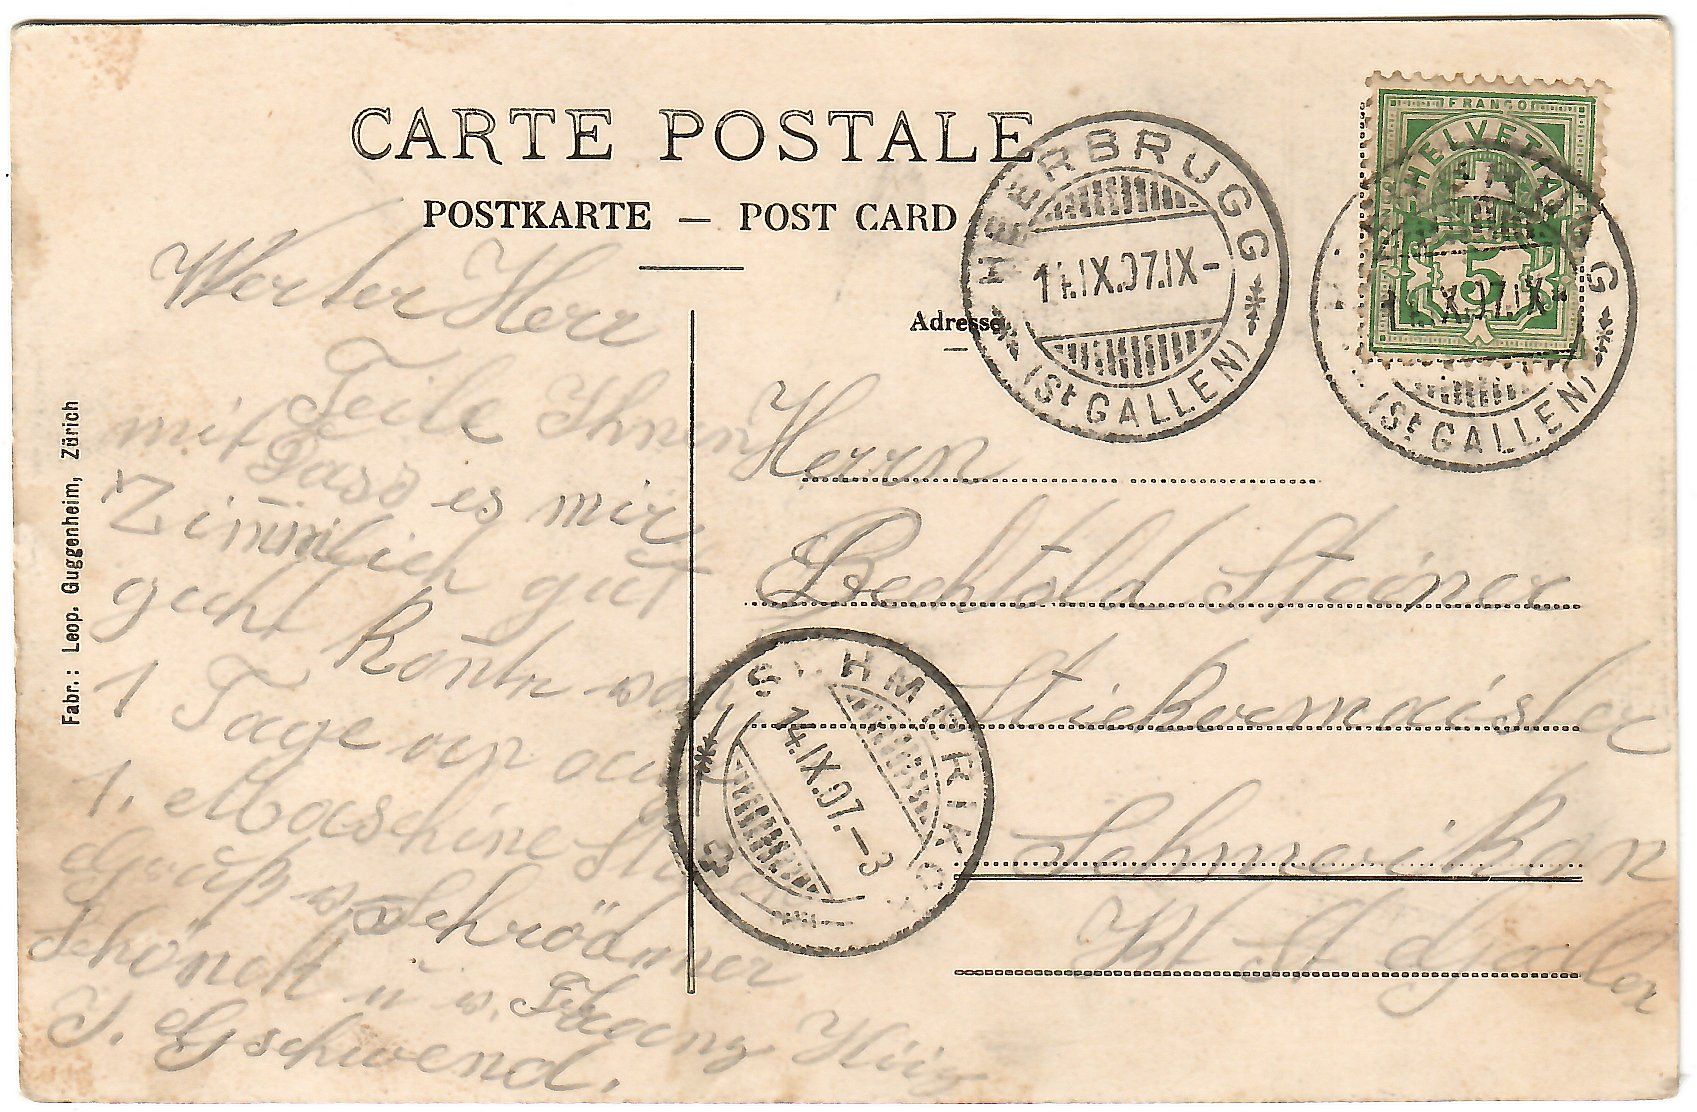 CARTE POSTALE
POSTKARTE — POST CARD
Adresse
Fabr.: Leop. Guggenheim, Zürich
FRANCO
HELVETIA
5
HEERBRUGG
14.IX.07.IX-
(St GALLEN)
HEERBRUGG
14.IX.07.IX-
(St GALLEN)
SCHMERIKON
14.IX.07.–3
Werter Herr
Teile Ihnen
mit Dass es mir
Zimmlich gut
geht
1 Tage
1. Maschine
Schönelt u
J. Gschwend.
Herrn
Bechtold Steiner
Stickermaister
Schmerikon
Kt St Galler